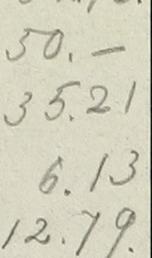 50.—
35.21
6.13
12.79.